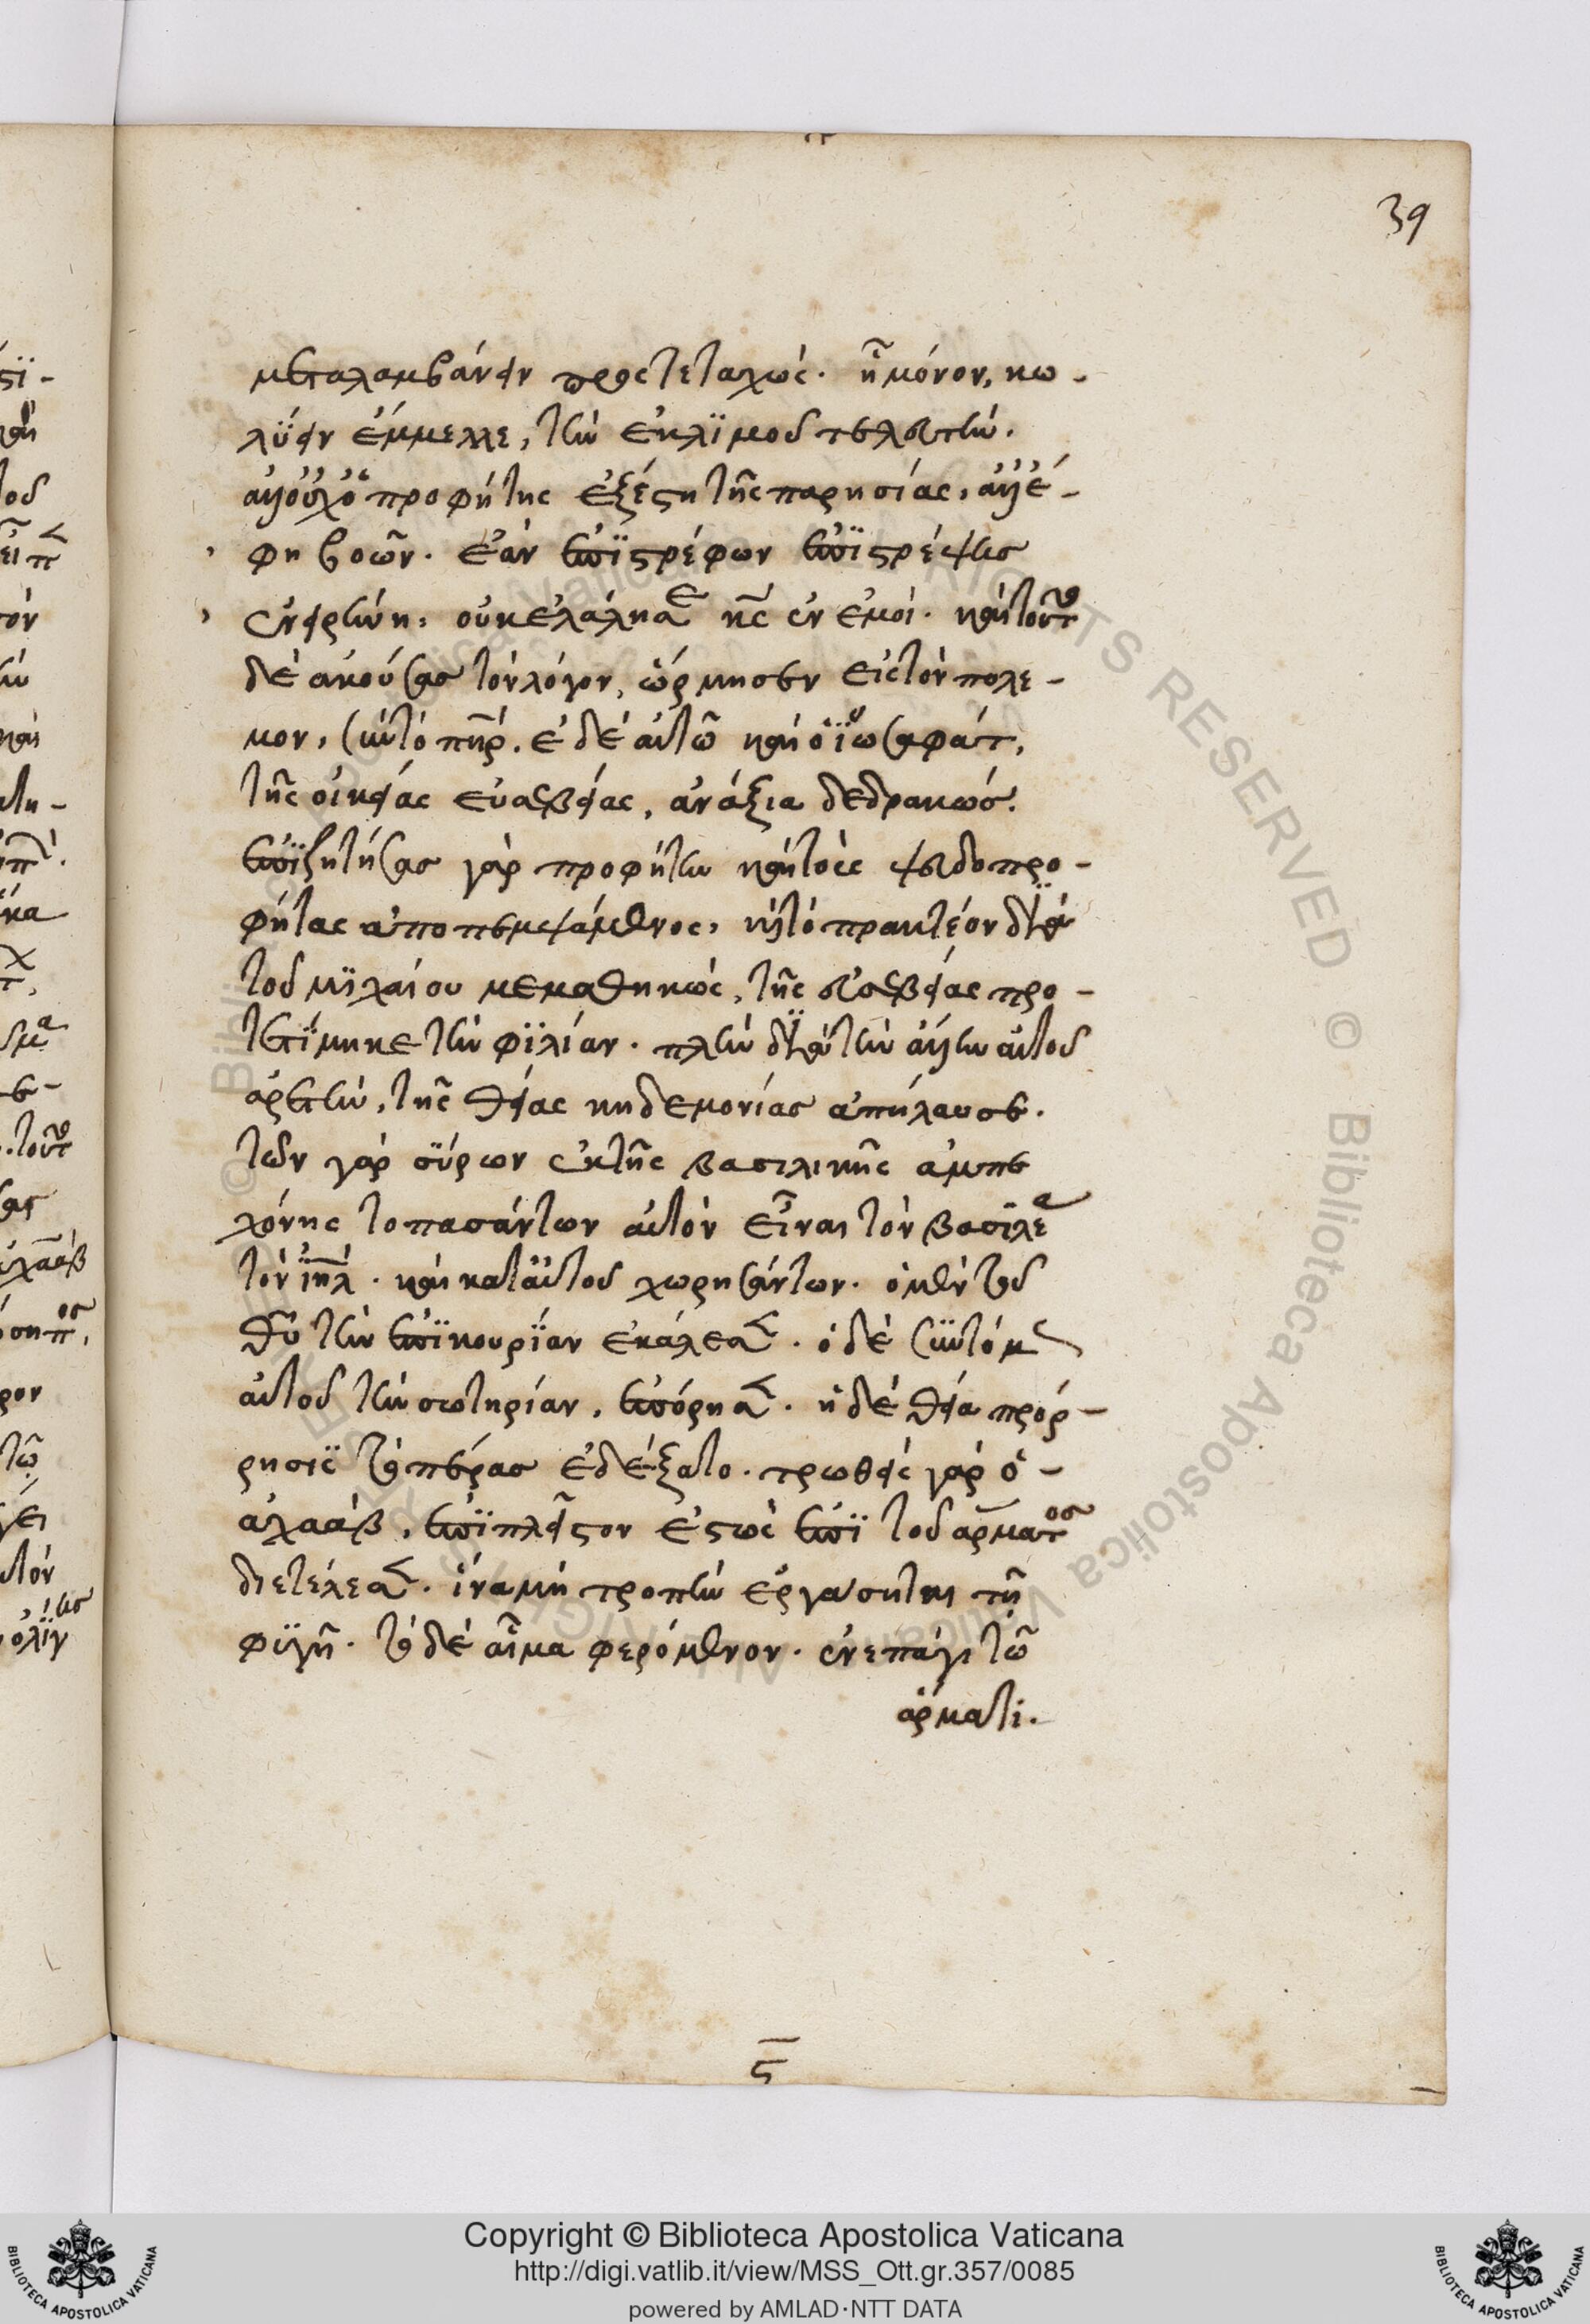 39
μεταλαμβάνειν προστεταχώς. ἢ μόνον, κω-
λύειν ἔμμελλε, τὴν ἐκλιμοῦ τελευτήν.
ἀλλ' οὐχ ὁ προφήτης ἐξέστη τῆς παρησίας, ἀλλ' έ-
φη βοῶν. ἐὰν ἐπιστρέφων ἐπιστρέψης
ἐν εἰρήνη, οὐκ ἐλάλησε κς ἐν ἐμοί. καὶ τοῦτο
δὲ ἀκούσας τὸν λόγον, ὥρμησεν εἰς τὸν πόλε-
μον, σὺν τὸ πηρ. ἐδὲ αὐτῶ καὶ ὁ ἰωσαφάτ,
τῆς οἰκείας εὐσεβείας, ἀνάξια δεδρακώς.
ἐπιζητήσας γὰρ προφήτην καὶ τοὺς ψευδοπρο-
φήτας ἀποπεμψάμενος, καὶ τὸ πρακτέον διὰ
τοῦ μιχαίου μεμαθηκώς, τῆς εὐσεβείας προ-
τετίμηκε τὴν φιλίαν. πλὴν διὰ τὴν ἄλλην αὐτοῦ
ἀρετήν, τῆς θείας κηδεμονίας ἀπήλαυσε.
τῶν γὰρ σύρων ἐκ τῆς βασιλικῆς ἀμπε
χόνης τοπασάντων αὐτὸν εἶναι τὸν βασιλέα
τὸν ιηλ. καὶ κατ' αὐτοῦ χωρησάντων. ὁ μὲν τοῦ
θυ τὴν ἐπικουρίαν ἐκάλεσεν. ὁ δὲ σὺν τὸ μ
αὐτοῦ τὴν σωτηρίαν, ἐπόρησεν. ἡ δὲ θεία πρόρ-
ρησις τὸ πέρας ἐδέξατο. τρωθεὶς γὰρ ὁ-
ἀχαάβ, ἐπιπλεῖστον ἐστὼς ἐπὶ τοῦ ἅρματος
διετέλεσεν. ἵνα μὴ τροπὴν ἐργάσηται τῆ
φυγῆ. τὸ δὲ αἷμα φερόμενον. ἐνεπάγι τῶ
ἅρματι.
ς
Copyright © Biblioteca Apostolica Vaticana
http://digi.vatlib.it/view/MSS_Ott.gr.357/0085
powered by AMLAD·NTT DATA